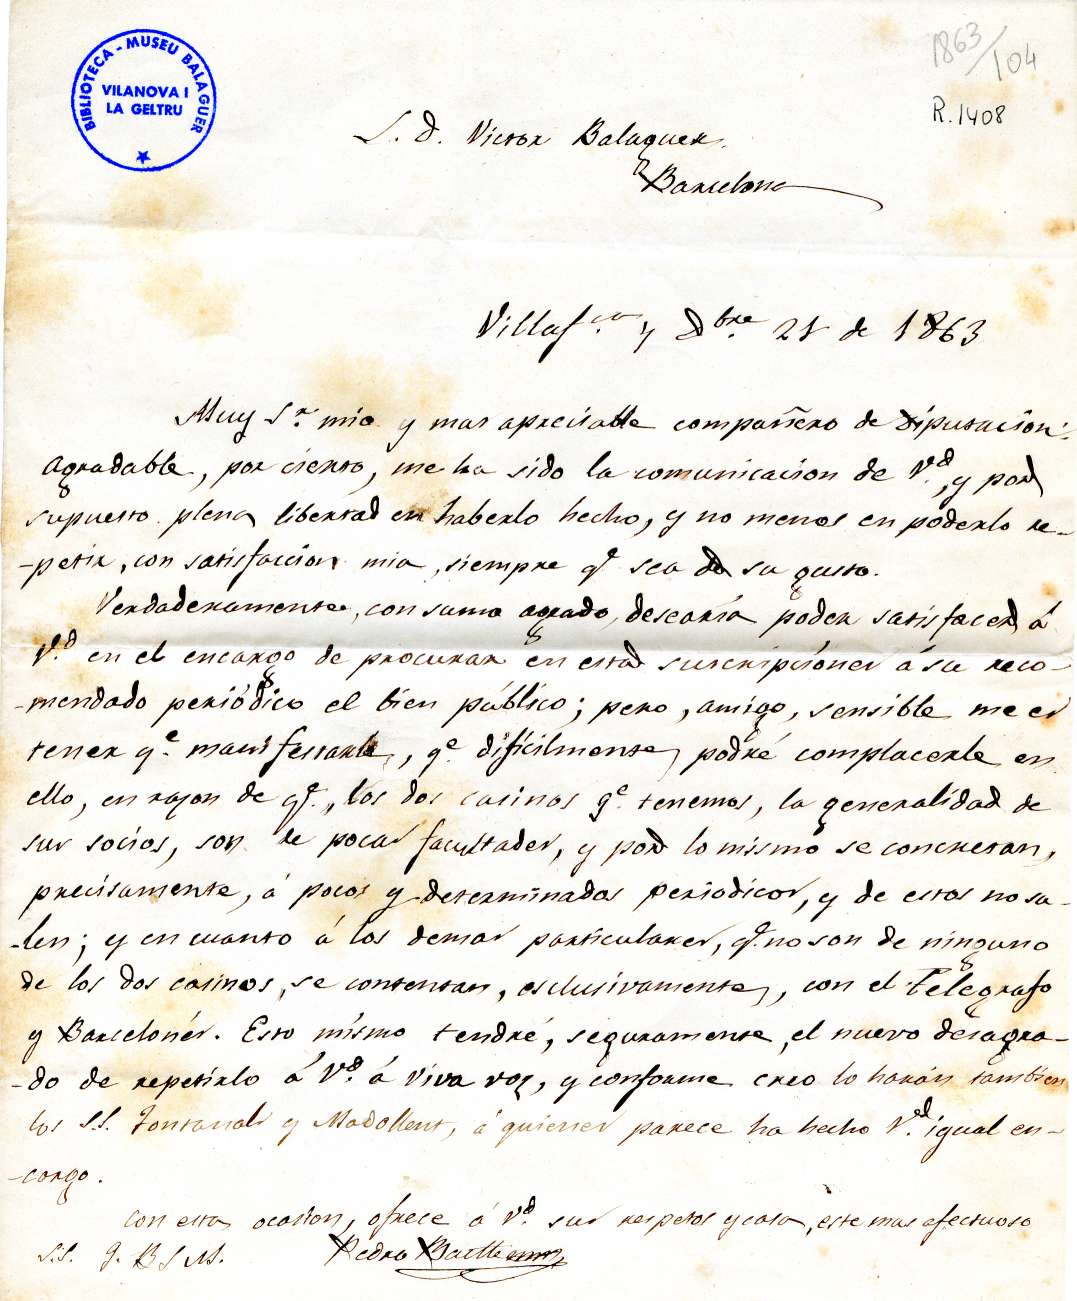 BIBLIOTECA - MUSEU BALAGUER
VILANOVA I
LA GELTRU
1863/104
R.1408
S. D. Victor Balaguer.
Barcelona
Villaf.ca y Dbre 21 de 1863
Muy Sr mio y mas apreciable compañero de Diputacion:
Agradable, por cierto, me ha sido la comunicacion de V.d, y por
supuesto plena libertad en haberlo hecho, y no menos en poderlo re-
-petir, con satisfaccion mia, siempre qe sea de su gusto.
Verdaderamente, con sumo agrado, desearía poder satisfacer á
V.d en el encargo de procurar en esta suscripciones á su reco-
-mendado periódico el bien público; pero, amigo, sensible me es
tener qe. manifestarle, qe. dificilmente podré complacerle en
ello, en razon de qe., los dos casinos qe. tenemos, la generalidad de
sus socios, son de pocas facultades, y por lo mismo se concretan,
precisamente, á pocos y determinados periodicos, y de estos no sa-
-len; y en cuanto á los demas particulares, qe. no son de ninguno
de los dos casinos, se contentan, esclusivamente, con el Telegrafo
y Barcelonés. Esto mismo tendré, seguramente, el nuevo desagra-
-do de repetirlo á Vd. á viva voz, y conforme creo lo harán tambien
los S.S. Fontanals y Madollent, á quienes parece ha hecho V.d igual en-
-cargo.
Con esta ocasion, ofrece á Vd sus respetos y casa, este mas afectuoso
S.S. q. B S M. Pedro